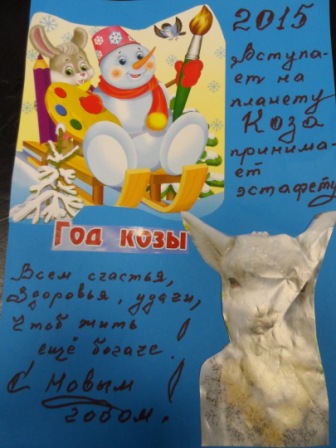 2015
Вступа-
ет на
планету
Коза
принима-
ет
эстафету
Год козы
Всем счастья,
Здоровья, удачи,
Чтоб жить
ещё богаче!
С Новым
годом!